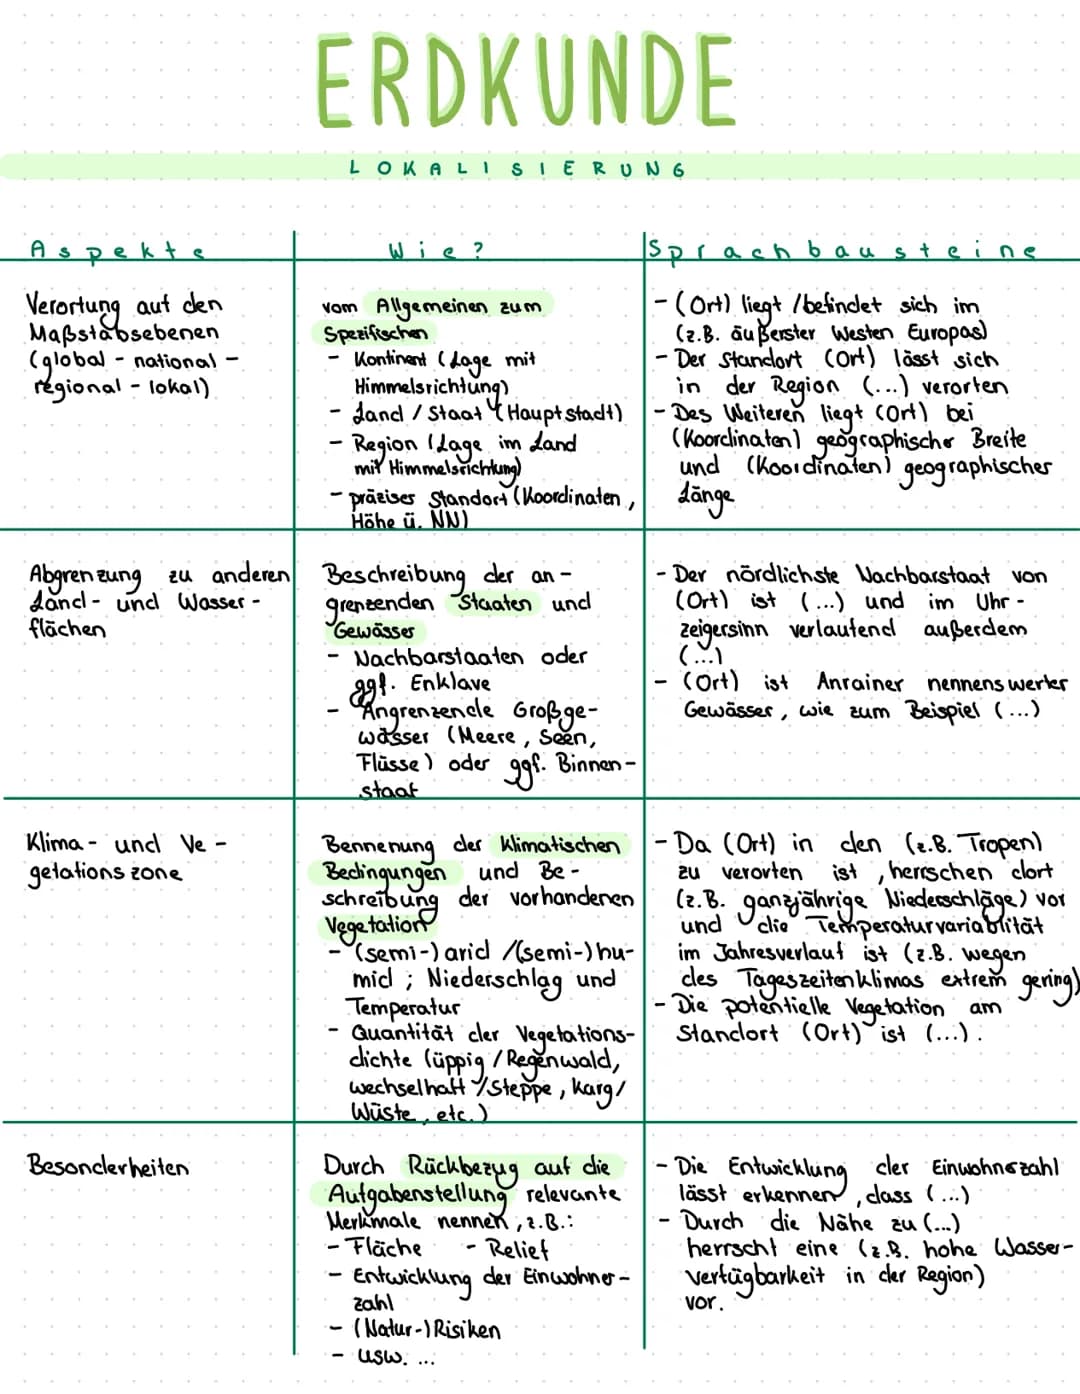 ERDKUNDE
LOKALISIERUNG
Aspekte
Wie?
Sprachbausteine
Verortung auf den
Maßstabsebenen
(global - national -
regional - lokal)
vom Allgemeinen zum
Spezifischen
- Kontinent (Lage mit
Himmelsrichtung)
- Land / Staat (Hauptstadt)
- Region (Lage im Land
mit Himmelsrichtung)
- präzises Standort (Koordinaten,
Höhe ü. NN)
- (Ort) liegt / befindet sich im
(z.B. äußerster Westen Europas)
- Der Standort (Ort) lässt sich
in der Region (...) verorten
- Des Weiteren liegt (Ort) bei
(Koordinaten) geographischer Breite
und (Koordinaten) geographischer
Länge
Abgrenzung zu anderen
Land- und Wasser-
flächen
Beschreibung der an-
grenzenden Staaten und
Gewässer
- Nachbarstaaten oder
ggf. Enklave
- Angrenzende Großge-
wässer (Meere, Seen,
Flüsse) oder ggf. Binnen-
staat
- Der nördlichste Nachbarstaat von
(Ort) ist (...) und im Uhr-
zeigersinn verlaufend außerdem
(...)
- (Ort) ist Anrainer nennenswerter
Gewässer, wie zum Beispiel (...)
Klima- und Ve-
getationszone
Bennenung der klimatischen
Bedingungen und Be-
schreibung der vorhandenen
Vegetation
- (semi-) arid / (semi-) hu-
mid ; Niederschlag und
Temperatur
- Quantität der Vegetations-
dichte (üppig / Regenwald,
wechselhaft / Steppe, karg /
Wüste, etc.)
- Da (Ort) in den (z.B. Tropen)
zu verorten ist, herrschen dort
(z.B. ganzjährige Niederschläge) vor
und die Temperaturvariablität
im Jahresverlauf ist (z.B. wegen
des Tageszeitenklimas extrem gering)
- Die potentielle Vegetation am
Standort (Ort) ist (...).
Besonderheiten
Durch Rückbezug auf die
Aufgabenstellung relevante
Merkmale nennen, z.B.:
- Fläche - Relief
- Entwicklung der Einwohner-
zahl
- (Natur-) Risiken
- usw. ...
- Die Entwicklung der Einwohnerzahl
lässt erkennen, dass (...)
- Durch die Nähe zu (...)
herrscht eine (z.B. hohe Wasser-
verfügbarkeit in der Region)
vor.